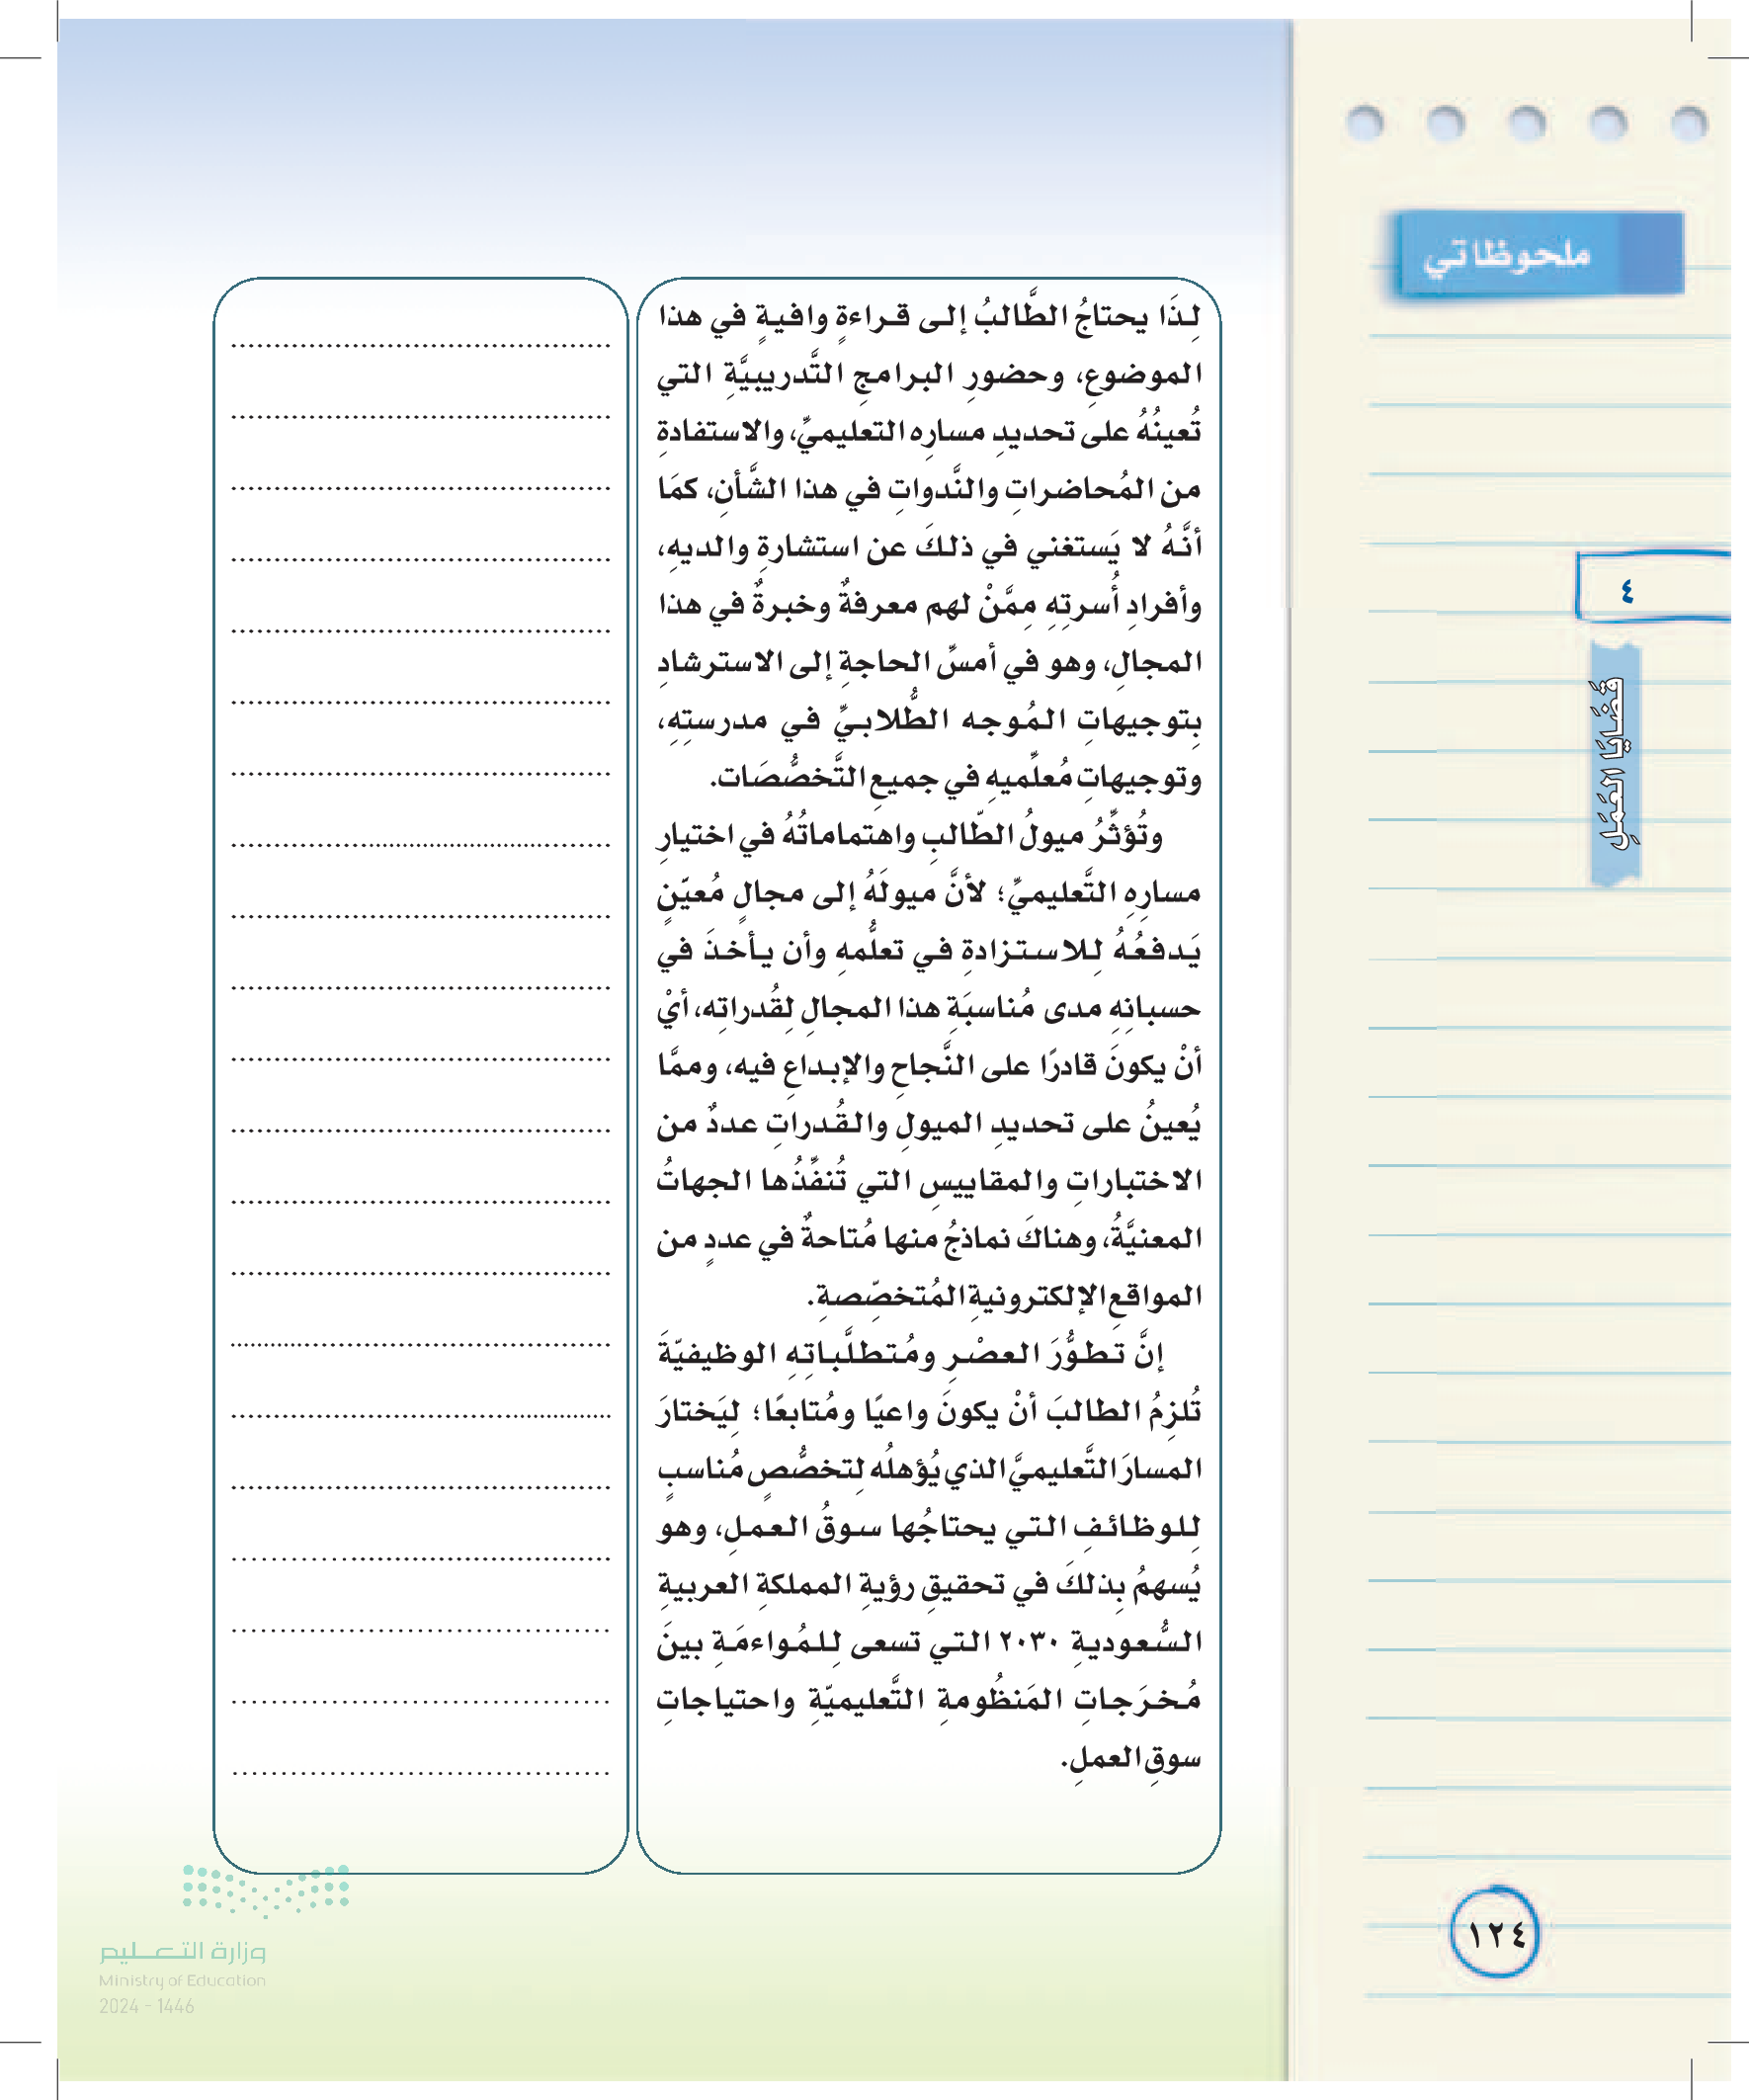 ملحوظاتي
٤
قَضَايَا العَمَلِ
لِـذَا يحتاجُ الطَّالبُ إلـى قـراءةٍ وافيـةٍ في هذا
الموضوعِ، وحضورِ البرامجِ التَّدريبيَّةِ التي
تُعينُهُ على تحديدِ مسارِه التعليميِّ، والاستفادةِ
من المُحاضراتِ والنَّدواتِ في هذا الشَّأنِ، كمَا
أنَّـهُ لا يَستغني في ذلكَ عن استشارةِ والديهِ،
وأفرادِ أُسرتِهِ مِمَّنْ لهم معرفةٌ وخبرةٌ في هذا
المجالِ، وهو في أمسِّ الحاجةِ إلى الاسترشادِ
بِتوجيهاتِ المُوجه الطُّلابيِّ في مدرستِهِ،
وتوجيهاتِ مُعلِّميهِ في جميعِ التَّخصُّصَات.
وتُؤثِّرُ ميولُ الطّالبِ واهتماماتُهُ في اختيارِ
مسارِهِ التَّعليميِّ؛ لأنَّ ميولَهُ إلى مجالٍ مُعيّنٍ
يَدفعُـهُ لِلاسـتـزادةِ فـي تعلُّمهِ وأن يـأخـذَ في
حسبانِهِ مدى مُناسبَةِ هذا المجالِ لِقُدراتِه، أيْ
أنْ يكونَ قادرًا على النَّجاحِ والإبـداعِ فيه، وممَّا
يُعينُ على تحديدِ الميولِ والـقُـدراتِ عددٌ من
الاختباراتِ والمقاييسِ التي تُنفِّذُها الجهاتُ
المعنيَّةُ، وهناكَ نماذجُ منها مُتاحةٌ في عددٍ من
المواقعِ الإلكترونيةِ المُتخصِّصةِ.
إنَّ تـطـوُّرَ العصْـرِ ومُتطلَّبـاتِـهِ الوظيفيّةَ
تُلزِمُ الطالبَ أنْ يكونَ واعيًا ومُتابعًا؛ لِيَختارَ
المسارَ التَّعليميَّ الذي يُؤهلُه لِتخصُّصٍ مُناسبٍ
لِلوظائفِ التي يحتاجُها سـوقُ العمـلِ، وهو
يُسهمُ بِذلكَ في تحقيقِ رؤيةِ المملكةِ العربيةِ
السُّعوديةِ ٢٠٣٠ التي تسعى لِلمُواءمَـةِ بينَ
مُخرَجاتِ المَنظُومةِ التَّعليميّةِ واحتياجاتِ
سوقِ العملِ.
١٢٤
وزارة التعليم
Ministry of Education
2024 - 1446